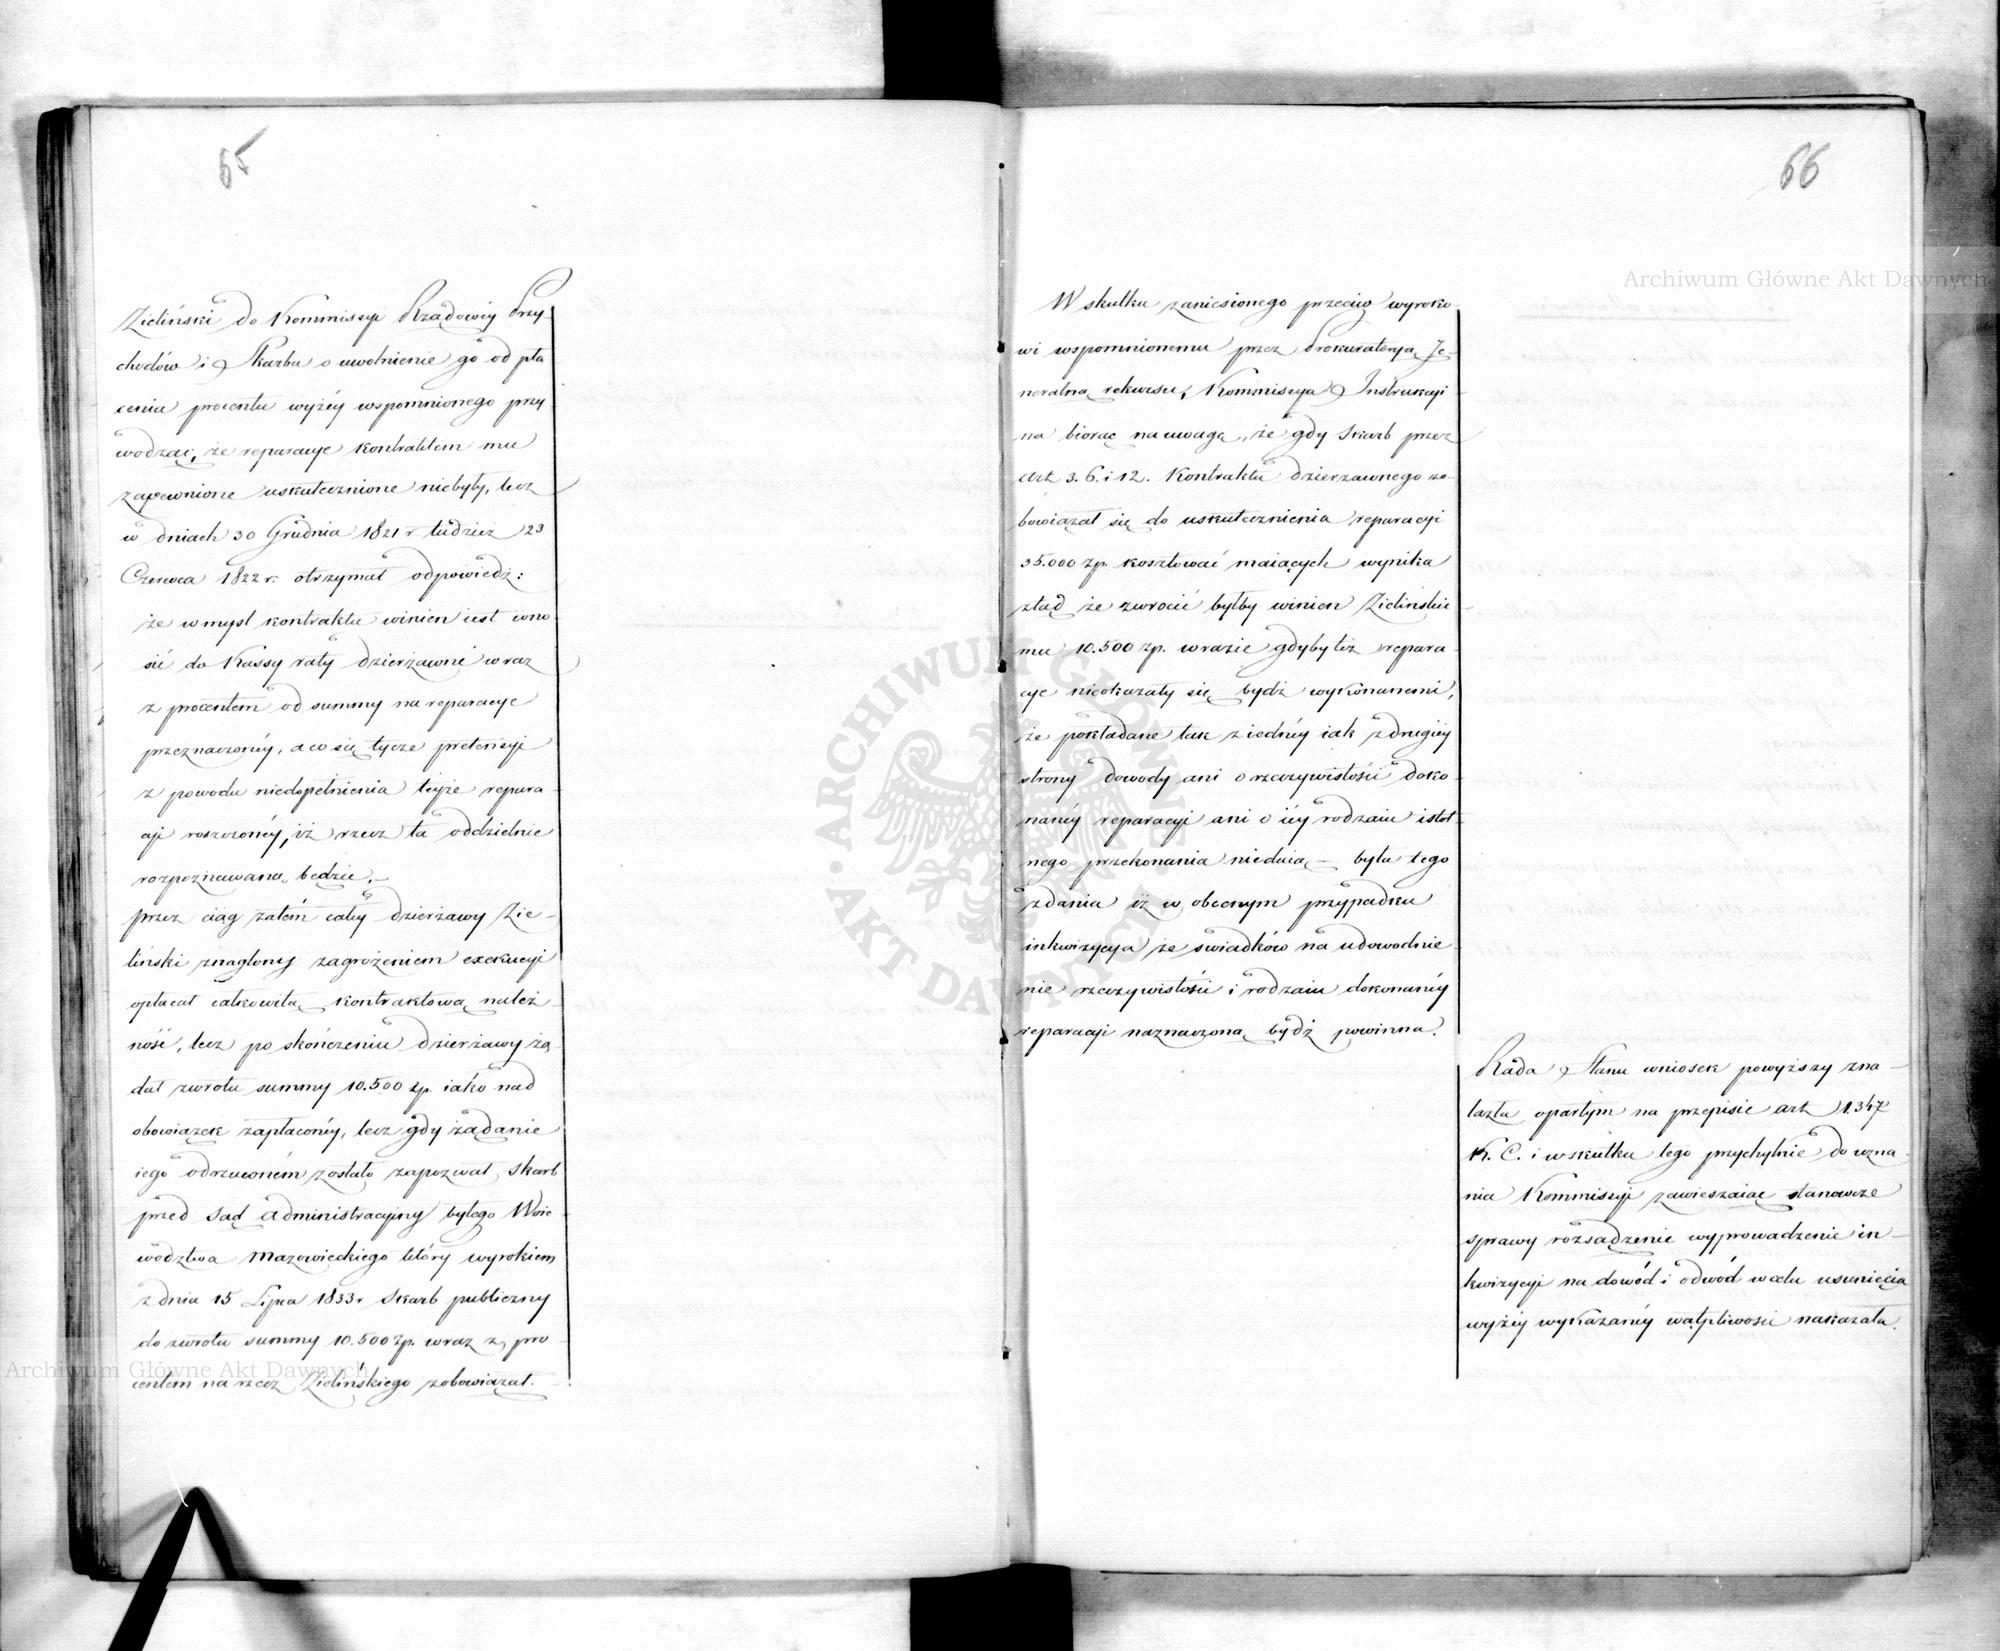 65
Zieliński do Kommissyi Rządowéy Przy
chodów i Skarbu o uwolnienie go od pła
cenia procentu wyżéy wspomnionego przy
wodząc, że reparacye kontraktem mu
zapewnione uskutecznione niebyły, lecz
w dniach 30 Grudnia 1821 r. tudzież 23
Czerwca 1822 r. otrzymał odpowiedź:
że w myśl kontraktu winien iest wno
sić do Kassy raty dzierżawne wraz
z procentem od summy na reparacye
przeznaczonéy, a co się tycze pretensyi
z powodu niedopełnienia teyże repara
cyi roszczonéy, iż rzecz ta oddzielnie
rozpoznawaną będzie.
przez ciąg zatém całéy dzierżawy Zie-
liński znaglony zagrożeniem exekucyi
opłacał całkowitą kontraktową należ
ność, lecz po skończeniu dzierżawy żą
dał zwrotu summy 10.500 zp. iako nad
obowiązek zapłaconéy, lecz gdy żądanie
iego odrzuconém zostało zapozwał Skarb
przed Sąd Administracyjny byłego Woie
wodztwa Mazowieckiego który wyrokiem
z dnia 15 Lipca 1833 r. Skarb publiczny
do zwrotu summy 10.500 zp. wraz z pro
centem na rzecz Zielińskiego zobowiązał.
66
W skutku zaniesionego przeciw wyroko
wi wspomnionemu przez Prokuratoryą Je-
neralną rekursu, Kommissya Instrukcyi
na biorąc na uwagę, że gdy Skarb przez
Art 3. 6. i 12. Kontraktu dzierżawnego zo-
bowiązał się do uskutecznienia reparacyi
35.000 zp. kosztować maiących wynika
ztąd że zwrócić byłby winien Zielińskie
mu 10.500 zp. w razie gdyby też repara-
cye nieokazały się bydź wykonanemi,
że pokładane tak z iednéy iak z drugiéy
strony dowody ani o rzeczywistości doko-
nanéy reparacyi ani o iéy rodzaiu istot-
nego przekonania niedaią – była tego
zdania iż w obecnym przypadku
inkwizycya ze świadków na udowodnie-
nie rzeczywistości i rodzaiu dokonanéy
reparacyi naznaczoną bydź powinna.
Rada Stanu wniosek powyższy zna-
lazła opartym na przepisie art 1347
K. C. i w skutku tego przychylnie do uzna
nia Kommissyi zawieszaiąc stanowcze
sprawy rozsądzenie wyprowadzenie in-
kwizycyi na dowód i odwód w celu usunięcia
wyżéy wykazanéy wątpliwości nakazała.
Archiwum Główne Akt Dawnych
Archiwum Główne Akt Dawnych
ARCHIWUM GŁÓWNE AKT DAWNYCH